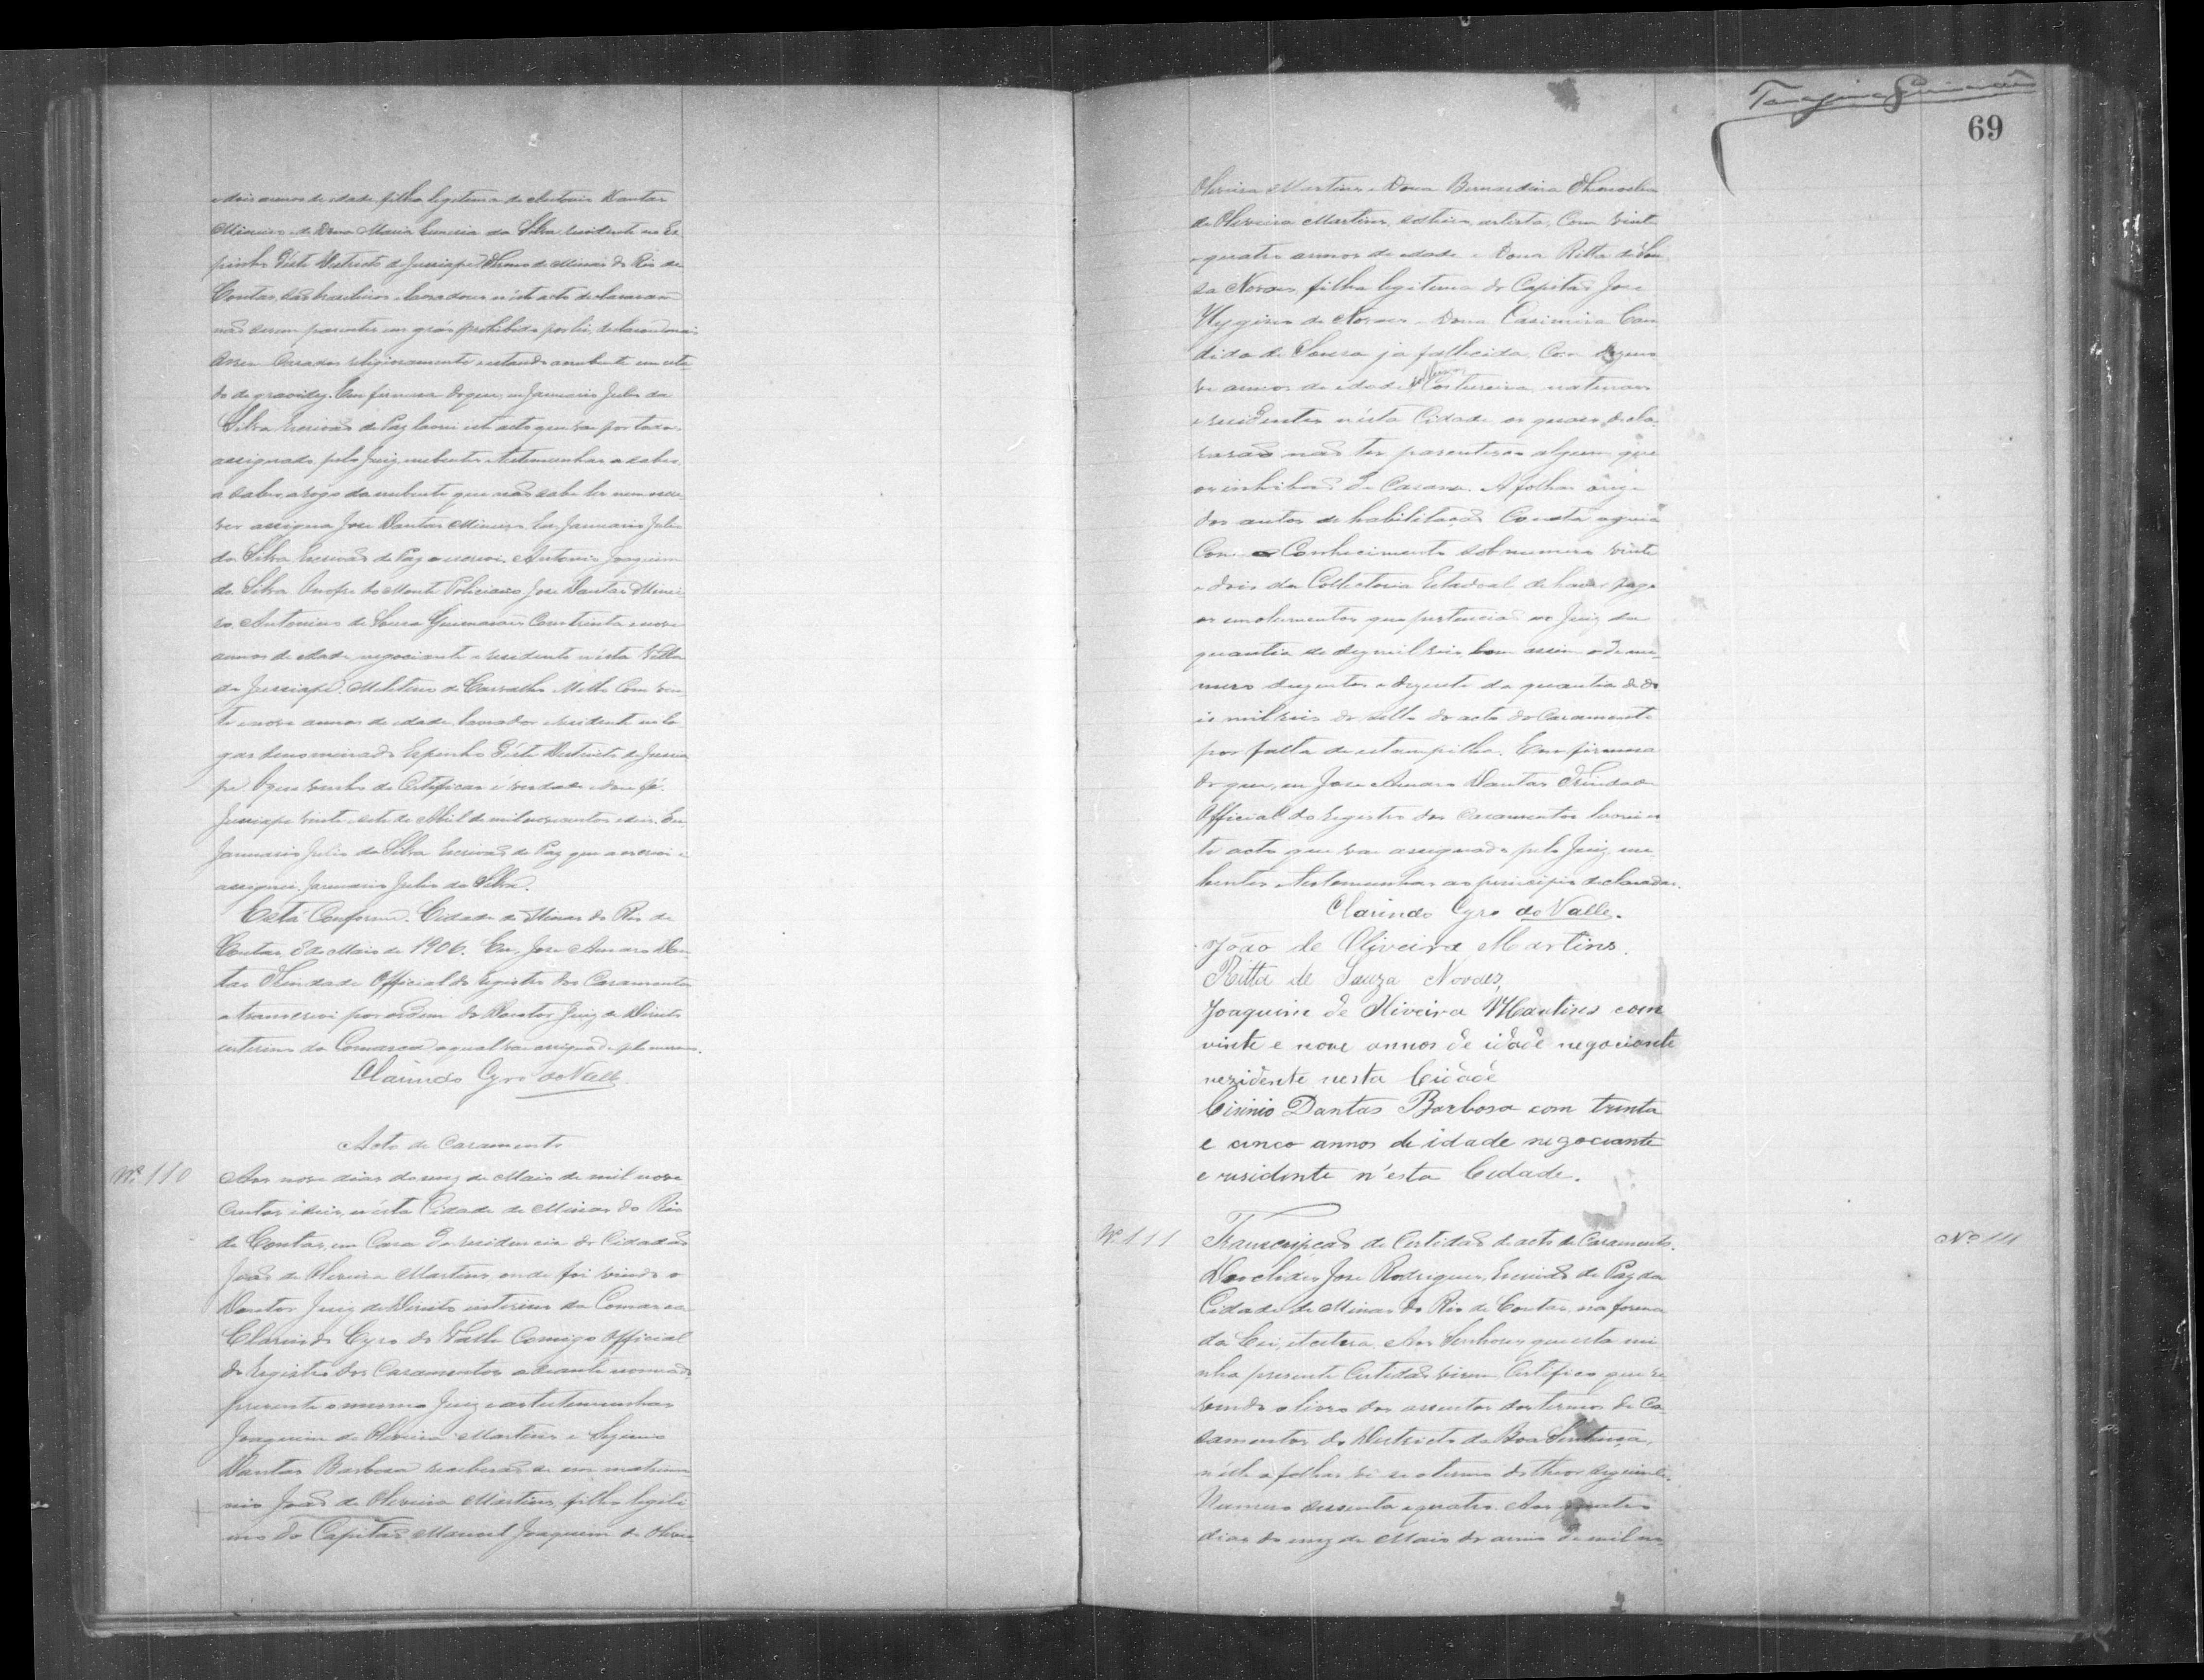 e dois annos de idade filha legitima de Antonio Dantas
Mineiro e de Dona Maria da Silva residente no Es
pinho d'este Districto de Jussiape Termo de Minas do Rio de
Contas, são brasileiros e lavradores n'este acto declararam
não serem parentes em gráo prohibido por lei, declarando mais
casados religiosamente estando a nubente em esta
do de gravidez. Em firmesa do que, eu Januario Julio da
Silva Escrivão de Paz lavrei este acto que vae por todos
assignado, pelo Juiz, nubentes e testemunhas a saber,
a saber, a rogo da nubente que não sabe ler nem escre
ver assigna José Dantas Mineiro. Eu, Januario Julio
da Silva Escrivão de Paz o escrevi. Antonio Joaquim
da Silva do Monte Policiano José Dantas Minei
ro. Antonino de Sousa Guimarães com trinta e nove
annos de idade, negociante e residente n'esta Villa
de Jussiape. de Carvalho Mello com vin
te e nove annos de idade, lavrador e residente no lo
gar denominado Espinho d'este Districto de Jussia
pe. O que venho de certificar é verdade e dou fé.
Jussiape vinte e sete de Abril de mil novecentos e seis. Eu,
Januario Julio da Silva Escrivão de Paz que a escrevi e
assignei. Januario Julio da Silva.
Está Conforme. Cidade de Minas do Rio de
Contas, 8 de Maio de 1906. Eu, José Amaro Dan
tas Trindade Official do Registro dos Casamentos
a transcrevi por ordem do Doutor Juiz de Direito
interino da Comarca a qual vae assignada pelo mesmo.
Clarindo Cyro do Valle
Acto de Casamento
Nº 110
Aos nove dias do mez de Maio de mil nove
centos e seis, n'esta Cidade de Minas do Rio
de Contas, em Casa da residencia do Cidadão
João de Oliveira Martins onde foi vindo o
Doutor Juiz de Direito interino da Comarca
Clarindo Cyro do Valle Comigo Official
do Registro dos Casamentos adiante nomeado
presente o mesmo Juiz e as testemunhas
Joaquim de Oliveira Martins e
Dantas Barbosa receberão-se em matrimo
nio João de Oliveira Martins, filho legiti
mo do Capitão Manoel Joaquim de Olivei
69
Oliveira Martins e Dona Bernardina
de Oliveira Martins, solteiro, artista, com vinte
e quatro annos de idade e Dona Ritta de Sou
sa Novaes, filha legitima do Capitão José
Hygino de Novaes e Dona Casimira Can
dida de Sousa já fallecida, com dezeno
ve annos de idade solteira Costureira, naturaes
e residentes n'esta Cidade os quaes decla
rarão não ter parentesco algum que
os inhibão de Casarem. A folhas onze
dos autos de habilitação Consta a guia
com o Conhecimento sob numero vinte
e dois da Collectoria Estadoal de haver pago
os emolumentos que pertencião ao Juiz da
quantia de dez mil reis, bem assim o de nu
mero duzentos e dezesete da quantia de do
is mil reis do sello do acto do Casamento
por falta de estampilha. Em firmesa
do que, eu José Amaro Dantas Trindade
Official do registro dos Casamentos lavrei es
te acto que vae assignado pelo Juiz nu
bentes e testemunhas ao principio declaradas.
Clarindo Cyro do Valle.
João de Oliveira Martins.
Ritta de Souza Novaes,
Joaquim de Oliveira Martins com
vinte e nove annos de idade negociante
rezidente nesta Cidade
Dantas Barbosa com trinta
e cinco annos de idade negociante
e residente n'esta Cidade.
Nº 111
Transcripção de Certidão de acto de Casamento.
José Rodrigues, Escrivão de Paz da
Cidade de Minas do Rio de Contas, na forma
da Lei, etcetera. Aos Senhores que esta mi
nha presente Certidão virem Certifico que re
vendo o livro dos assentos dos termos de Ca
samentos do Districto da Boa Sentença,
n'elle a folhas vi-se o termo do theor seguinte.
Numero sessenta e quatro. Aos quatro
dias do mez de Maio do anno de mil no
Nº 111